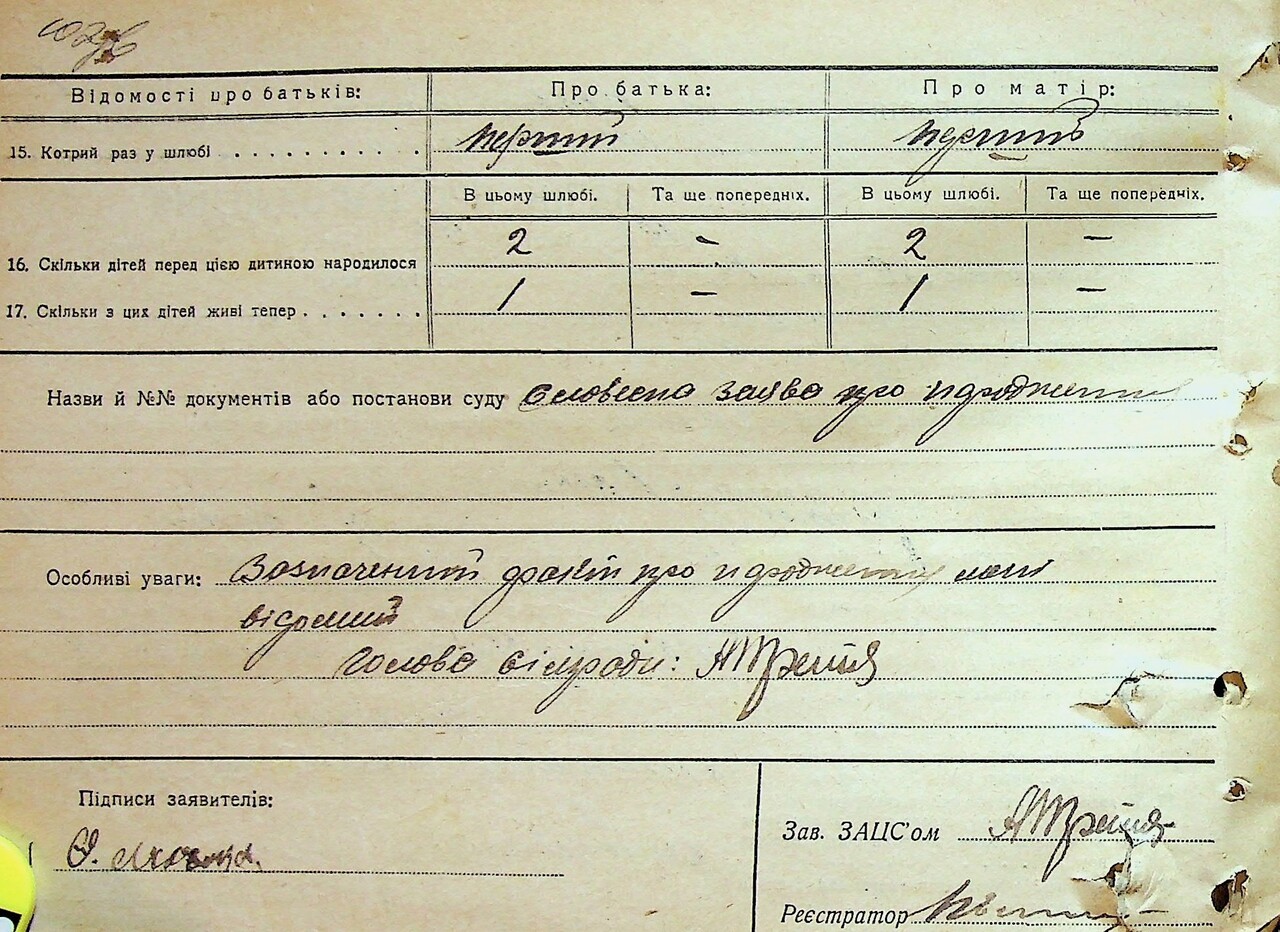 Відомості про батьків: Про батька: Про матір:
15. Котрий раз у шлюбі . . . . . . . . . . . перший перший
В цьому шлюбі. Та ще попередніх. В цьому шлюбі. Та ще попередніх.
16. Скільки дітей перед цією дитиною народилося 2 - 2 -
17. Скільки з цих дітей живі тепер . . . . . . . 1 - 1 -
Назви й №№ документів або постанови суду словесна заява про народження
Особливі уваги: Вазначенний факт про народження мені
відомий
Голова сільради:
Підписи заявителів:
Зав. ЗАЦС'ом
Реєстратор